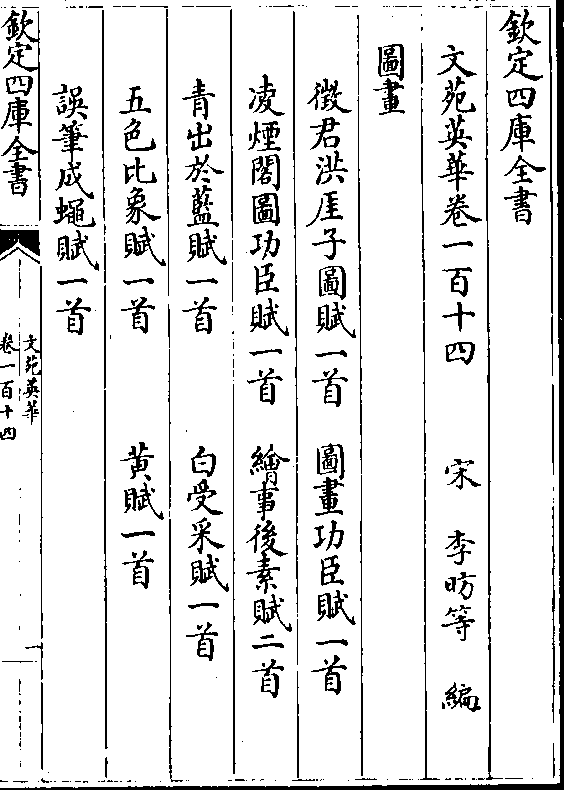 欽定四庫全書
文苑英華卷一百十四　宋　李昉等　編
圖畫
徵君洪厓子圖賦一首　圖畫功臣賦一首
凌煙閣圖功臣賦一首　繪事後素賦二首
青出於藍賦一首　白受采賦一首
五色比象賦一首　黄賦一首
誤筆成蠅賦一首
欽定四庫全書
文苑英華
卷一百十四
一